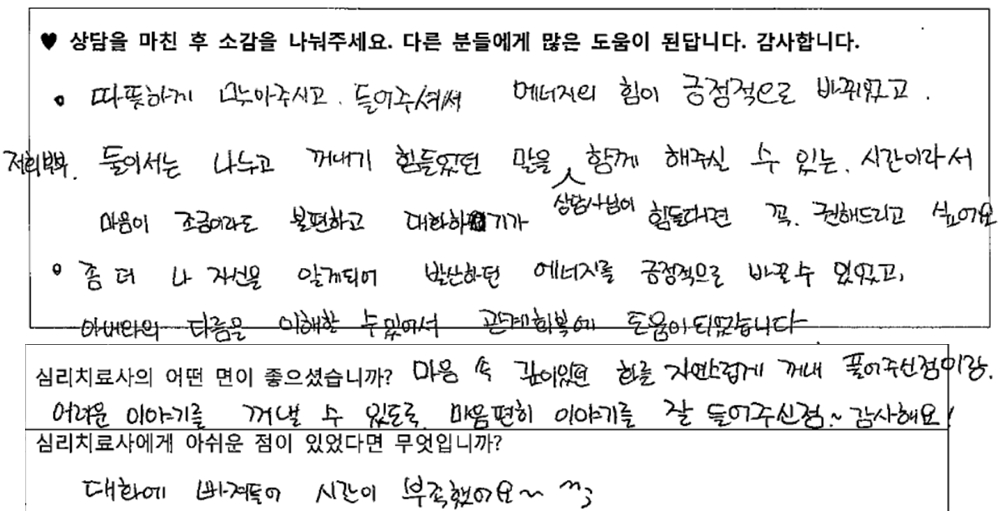 ♥ 상담을 마친 후 소감을 나눠주세요. 다른 분들에게 많은 도움이 된답니다. 감사합니다.
• 따뜻하게 맞아주시고. 들어주셔서 에너지의 힘이 긍정적으로 바뀌었고.
저희부부. 둘이서는 나누고 꺼내기 힘들었던 말을 상담사님이 함께 해주실 수 있는. 시간이라서
마음이 조금이라도 불편하고 대화하기가 힘들다면 꼭. 권해드리고 싶어요
• 좀 더 나 자신을 알게되어 발산하던 에너지를 긍정적으로 바꿀수 있었고,
아버라의 다름을 이해할 수있어서 관계회복에 도움이되었습니다.
심리치료사의 어떤 면이 좋으셨습니까? 마음 속 깊이있던 화를 자연스럽게 꺼내 풀어주신점이랑.
어려운 이야기를 꺼낼 수 있도록 마음편히 이야기를 잘 들어주신점~ 감사해요!
심리치료사에게 아쉬운 점이 있었다면 무엇입니까?
대화에 빠져들어 시간이 부족했어요~ ^^;